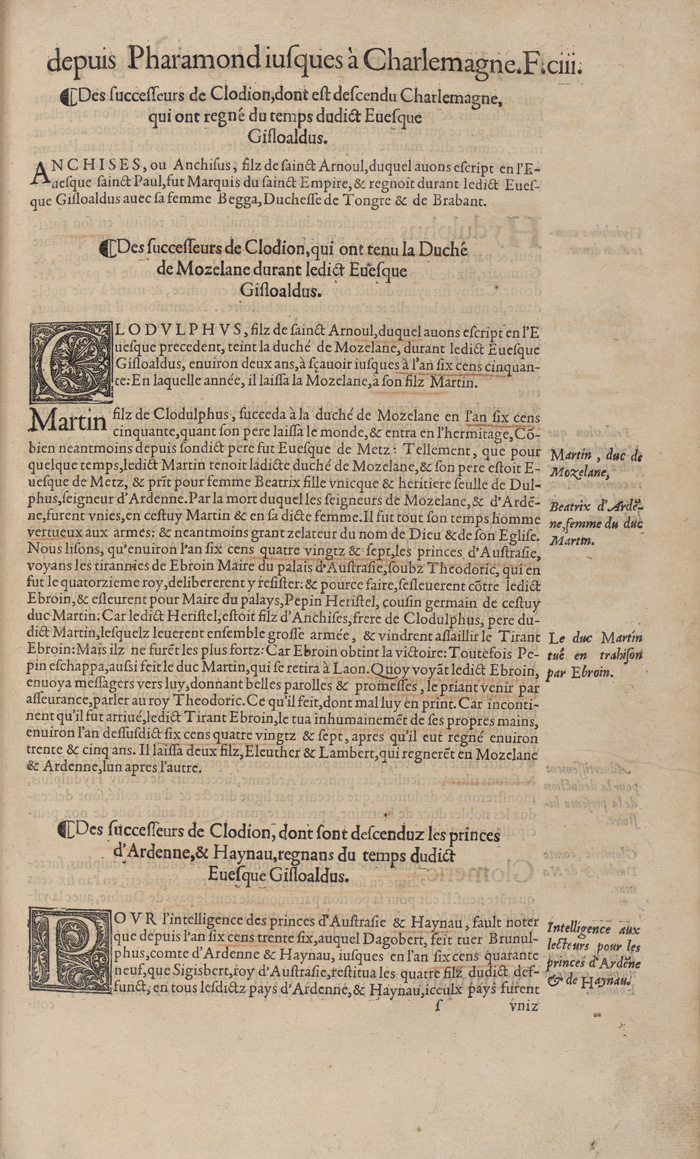 depuis Pharamond iuſques à Charlemagne. F. ciii.
⸿Des ſucceſſeurs de Clodion, dont eſt deſcendu Charlemagne,
qui ont regné du temps dudict Eueſque
Giſloaldus.
ANCHISES, ou Anchiſus, filz de ſainct Arnoul, duquel auons eſcript en l'E-
ueſque ſainct Paul, fut Marquis du ſainct Empire, & regnoit durant ledict Eueſ-
que Giſloaldus auec ſa femme Begga, Ducheſſe de Tongre & de Brabant.
⸿Des ſucceſſeurs de Clodion, qui ont tenu la Duché
de Mozelane durant ledict Eueſque
Giſloaldus.
CLODVLPHVS, filz de ſainct Arnoul, duquel auons eſcript en l'E
ueſque precedent, teint la duché de Mozelane, durant ledict Eueſque
Giſloaldus, enuiron deux ans, à ſçauoir iuſques à l'an ſix cens cinquan-
te: En laquelle année, il laiſſa la Mozelane, à ſon filz Martin.
Martin filz de Clodulphus, ſucceda à la duché de Mozelane en l'an ſix cens
cinquante, quant ſon pere laiſſa le monde, & entra en l'hermitage, Cõ-
bien neantmoins depuis ſondict pere fut Eueſque de Metz: Tellement, que pour
quelque temps, ledict Martin tenoit ladicte duché de Mozelane, & ſon pere eſtoit E-
ueſque de Metz, & prĩt pour femme Beatrix fille vnicque & heritiere ſeulle de Dul-
phus, ſeigneur d'Ardenne. Par la mort duquel les ſeigneurs de Mozelane, & d'Ardẽ-
ne, furent vnies, en ceſtuy Martin & en ſa dicte femme. Il fut tout ſon temps homme
vertueux aux armes: & neantmoins grant zelateur du nom de Dieu & de ſon Egliſe.
Nous liſons, qu'enuiron l'an ſix cens quatre vingtz & ſept, les princes d'Auſtraſie,
voyans les tirannies de Ebroin Maire du palais d'Auſtraſie, ſoubz Theodoric, qui en
fut le quatorzieme roy, delibererent y reſiſter: & pource faire, ſeſleuerent cõtre ledict
Ebroin, & eſleurent pour Maire du palays, Pepin Heriſtel, couſin germain de ceſtuy
duc Martin: Car ledict Heriſtel, eſtoit filz d'Anchiſes, frere de Clodulphus, pere du-
dict Martin, leſquelz leuerent enſemble groſſe armée, & vindrent aſſaillir le Tirant
Ebroin: Mais ilz ne furẽt les plus fortz: Car Ebroin obtint la victoire: Toutefois Pe-
pin eſchappa, auſſi feit le duc Martin, qui ſe retira à Laon. Quoy voyãt ledict Ebroin,
enuoya meſſagers vers luy, donnant belles parolles & promeſſes, le priant venir par
aſſeurance, parler au roy Theodoric. Ce qu'il feit, dont mal luy en print. Car inconti-
nent qu'il fut arriué, ledict Tirant Ebroin, le tua inhumainemẽt de ſes propres mains,
enuiron l'an deſſuſdict ſix cens quatre vingtz & ſept, apres qu'il eut regné enuiron
trente & cinq ans. Il laiſſa deux filz, Eleuther & Lambert, qui regnerẽt en Mozelane
& Ardenne, lun apres l'autre.
Martin, duc de
Mozelane,
Beatrix d'Ardẽ-
ne, femme du duc
Martin.
Le duc Martin
tué en trahiſon
par Ebroin.
⸿Des ſucceſſeurs de Clodion, dont ſont deſcenduz les princes
d'Ardenne, & Haynau, regnans du temps dudict
Eueſque Giſloaldus.
POVR l'intelligence des princes d'Auſtraſie & Haynau, fault noter
que depuis l'an ſix cens trente ſix, auquel Dagobert, feit tuer Brunul-
phus, comte d'Ardenne & Haynau, iuſques en l'an ſix cens quarante
neuf, que Sigisbert, roy d'Auſtraſie, reſtitua les quatre filz dudict deſ-
funct, en tous leſdictz pays d'Ardenne, & Haynau, iceulx pays furent
Intelligence aux
lecteurs pour les
princes d'Ardẽne
& de Haynau.
ſ vniz